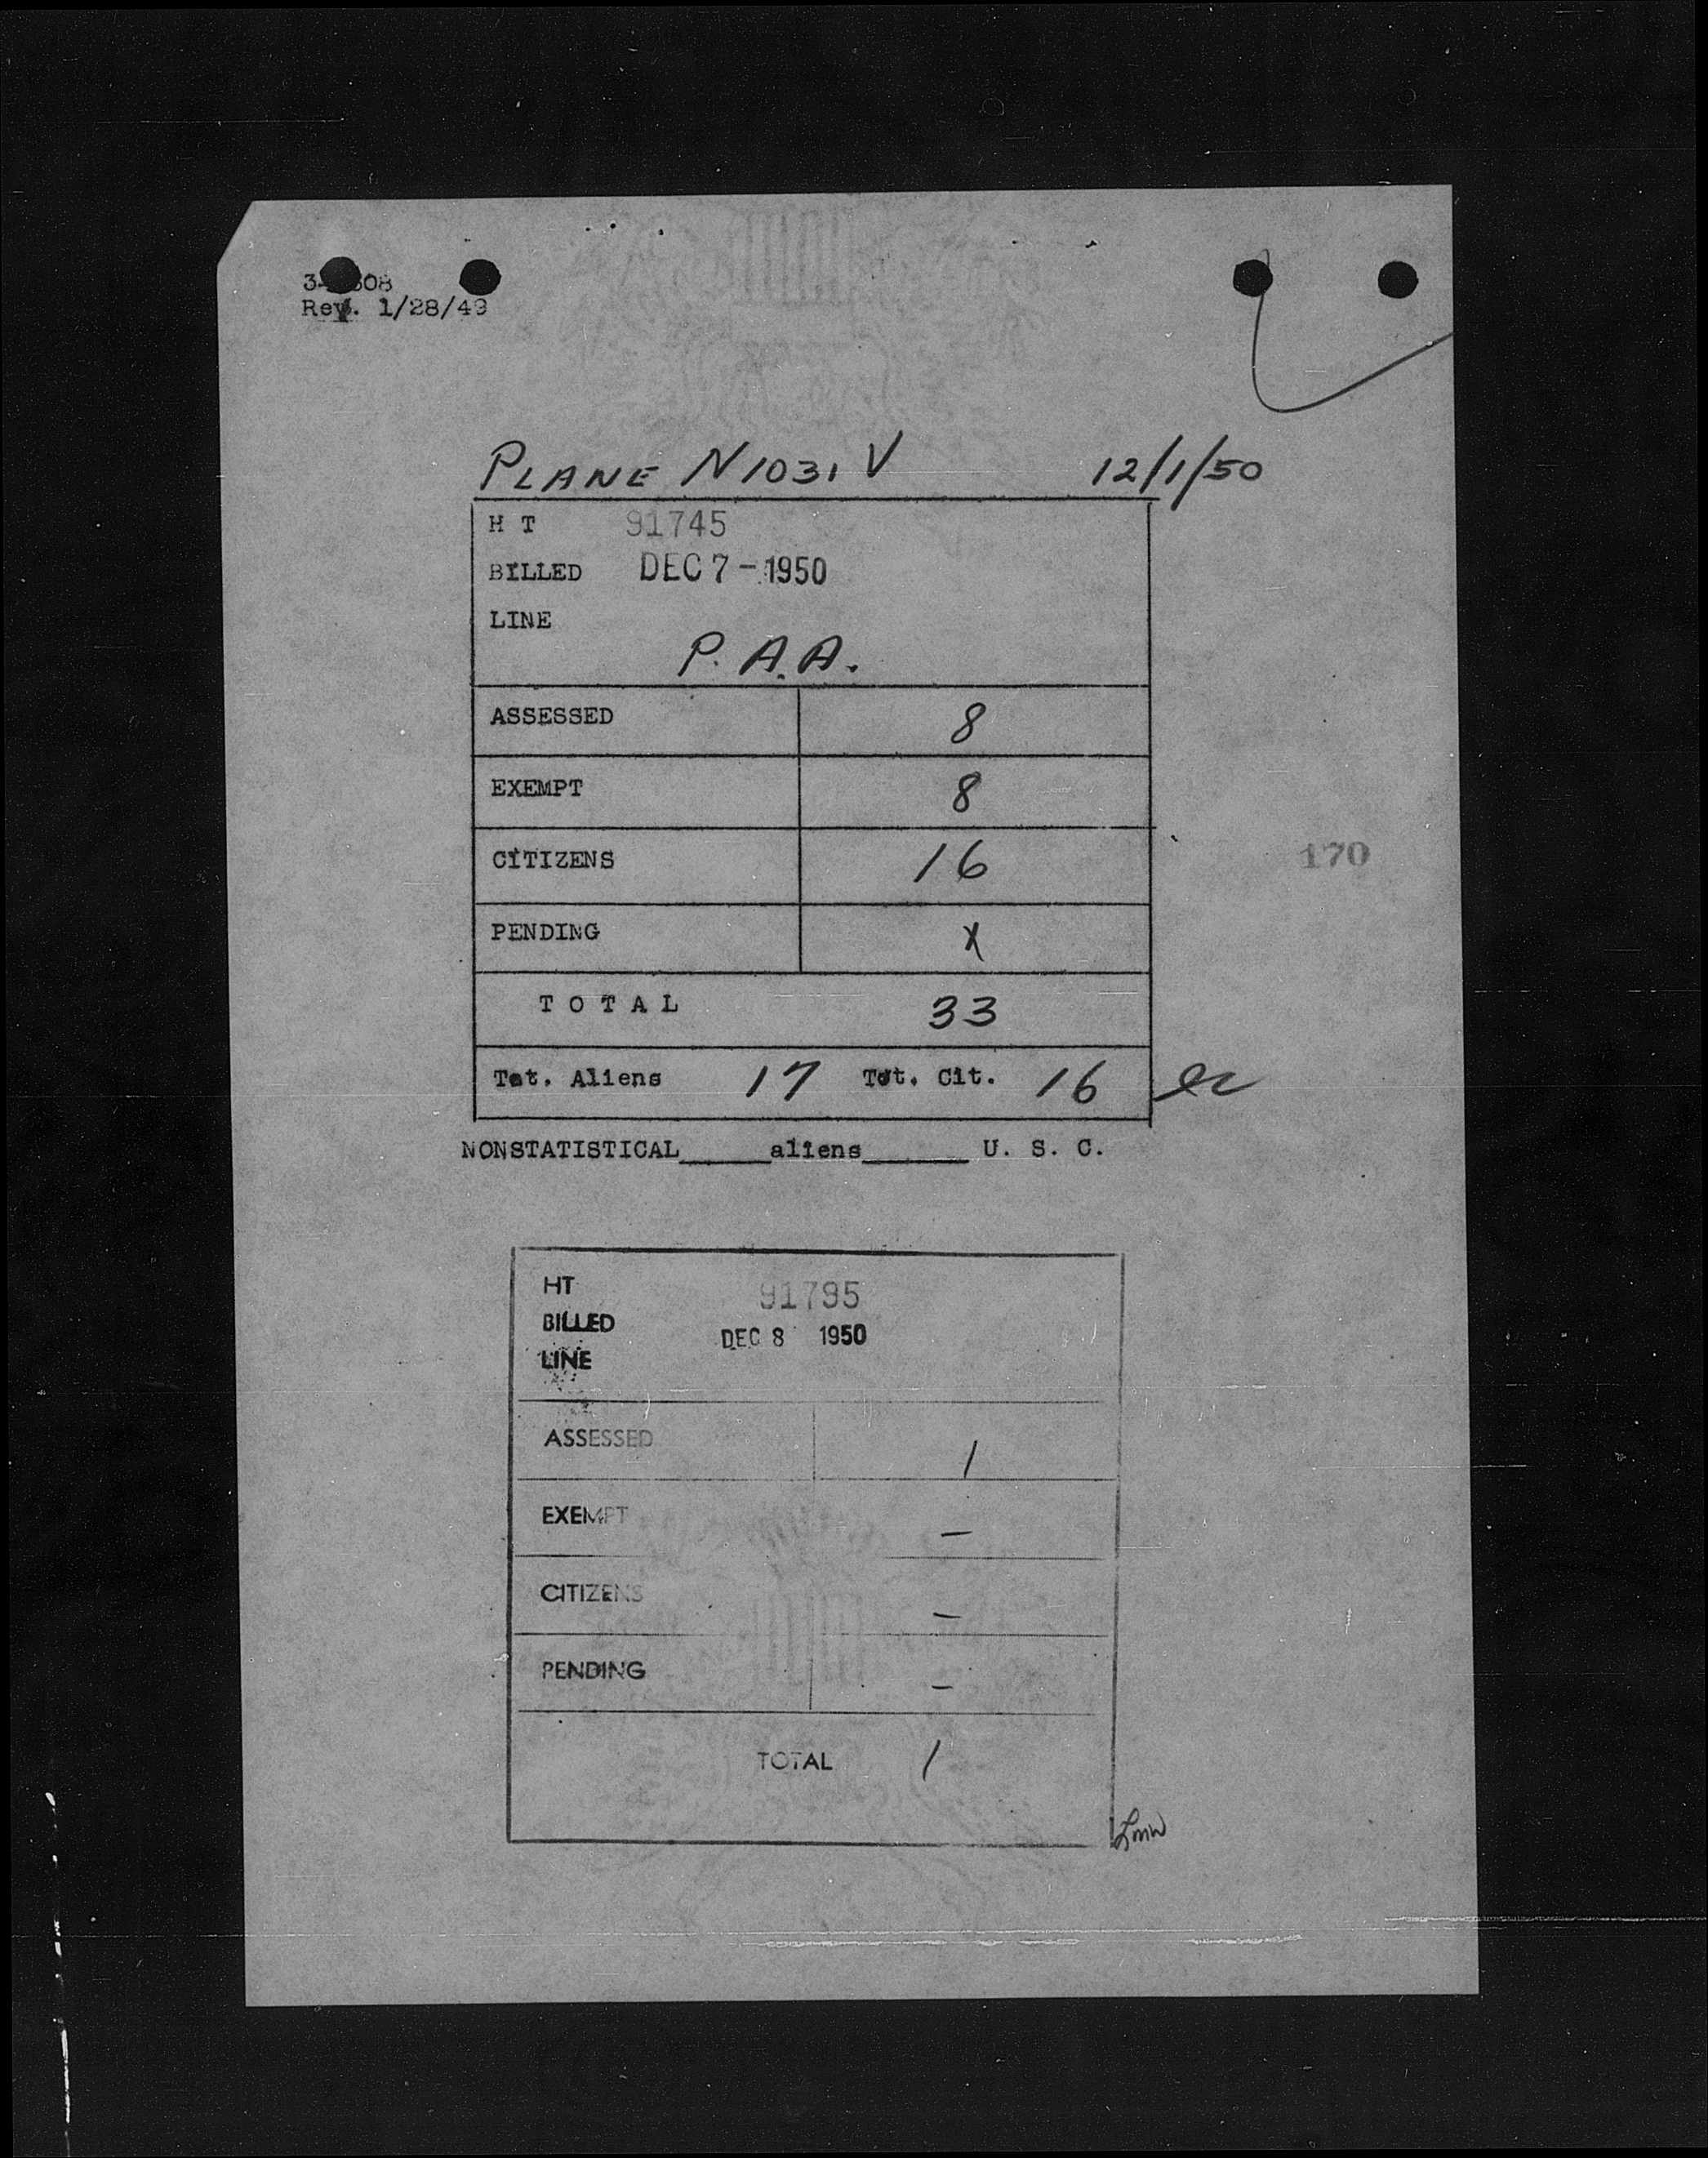 Rev. 1/28/49
PLANE N1031V 12/1/50
H T 91745
BILLED DEC 7 - 1950
LINE
P.A.A.
ASSESSED 8
EXEMPT 8
CITIZENS 16
170
PENDING X
T O T A L 33
Tot. Aliens 17 Tot. Cit. 16
NONSTATISTICAL______aliens_______ U. S. C.
HT 91795
BILLED DEC 8 1950
LINE
ASSESSED 1
EXEMPT –
CITIZENS –
PENDING –
TOTAL 1